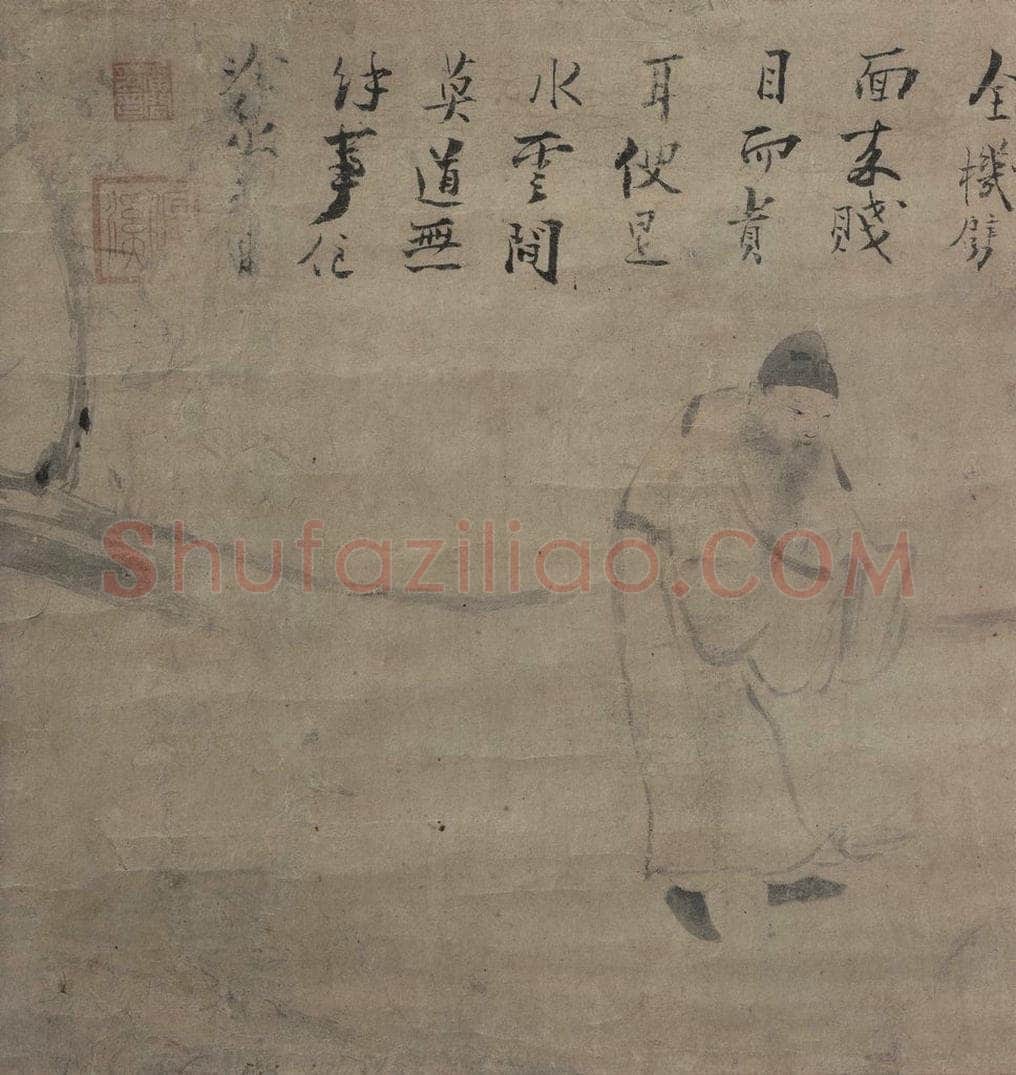 全機劈
面来賤
目而貴
耳便是
水雲間
莫道無
事
冷泉
Shufaziliao.COM